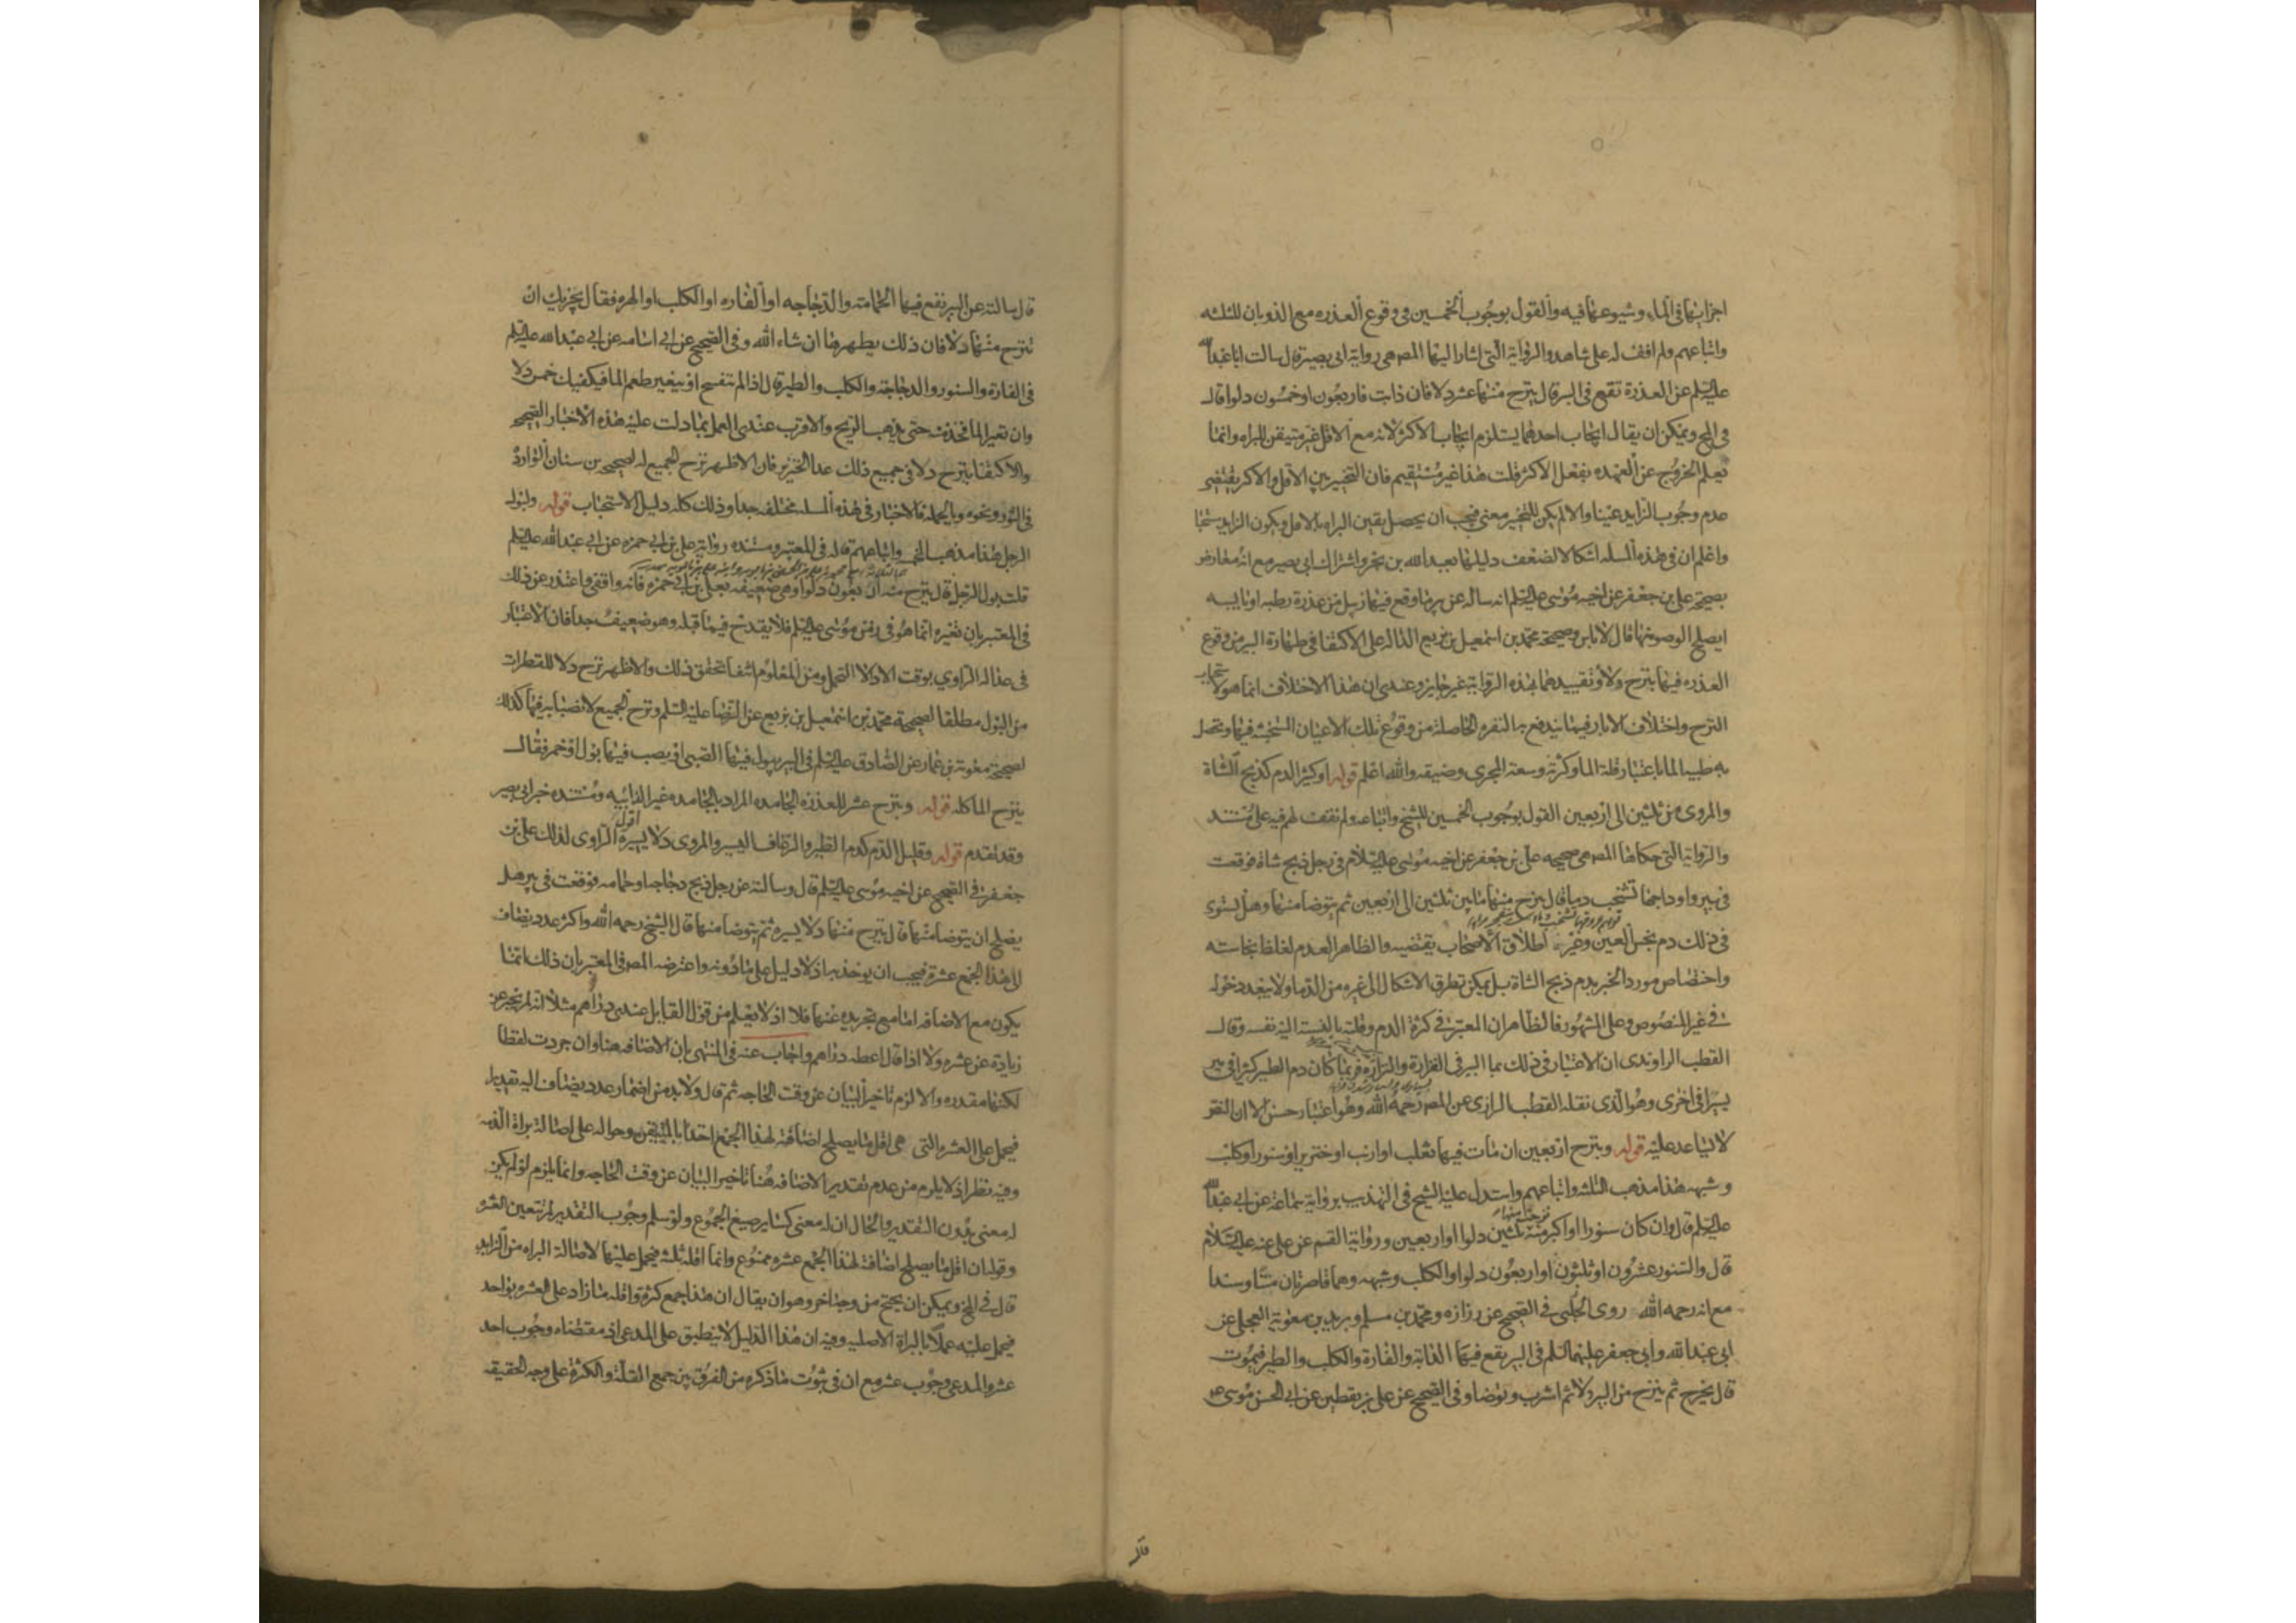 اجزائها فى الماء وشيوعها فيه والقول بوجوب الخمسين فى وقوع العذره مع الذوبان للثلثه
واتباعهم ولم اقف له على شاهد والرواية التى اشار اليها المص هى رواية ابى بصير قال سالت ابا عبد الله
عليه السلم عن العذرة تقع فى البر قال ينزح منها عشر دلا فان ذابت فاربعون او خمسون دلوا قال
فى المخ ويمكن ان يقال ايجاب احدهما يستلزم ايجاب الاكثر لانه مع الاقل غير متيقن للبراه وانما
يعلم الخروج عن العهده بفعل الاكثر قلت هذا غير مستقيم فان التخيير بين الاقل والاكثر يقتضى
عدم وجوب الزايد عينا والا لم يكن للتخير معنى فيجب ان يحصل يقين البراه بالاقل ويكون الزايد مستحبا
واعلم ان فى هذه المسله اشكالا لضعف دليلها بعبد الله بن بحر واشتراك ابى بصير مع انه معارض
بصحيحة على بن جعفر عن اخيه موسى عليه السلم انه ساله عن بر ما وقع فيها زبيل من عذرة رطبه او يابسه
ايصلح الوضو منها قال لا باس وصحيحة محمد بن اسمعيل بن بزيع الداله على الاكتفا فى طهارة البر من وقوع
العذره فيها بنزح دلا وتقييدهما بهذه الرواية غير جايز وعندى ان هذا الاختلاف انما هو لاستحباب
النزح واختلاف الابار فيما يندفع به النفره الحاصلة من وقوع تلك الاعيان النجسه فيها ويحصل
به طيب الما باعتبار قلة الما وكثرته وسعة المجرى وضيقه والله اعلم قوله او كثير الدم كذبح الشاة
والمروى من ثلثين الى اربعين القول بوجوب الخمسين للشيخ واتباعه ولم نقف لهم فيه على مستند
والرواية التى حكاها المص هى صحيحه على بن جعفر عن اخيه موسى عليه السلام فى رجل ذبح شاة فوقعت
فى بير واوداجها تشخب دما قال ينزح منها ما بين ثلثين الى اربعين ثم يتوضا منها وهل يستوى
فى ذلك دم نجس العين وغيره اطلاق الاصحاب يقتضيه والظاهر العدم لغلظ نجاسته
واختصاص مورد الخبر بدم ذبح الشاة بل يمكن تطرق الاشكال الى غيره من الدما ولا يبعد دخوله
فى غير المنصوص وعلى المشهور فالظاهر ان المعتبر فى كثرة الدم وقلته بالنسبة اليه نفسه وقال
القطب الراوندى ان الاعتبار فى ذلك بما البر فى الغزارة والنزارة فربما كان دم الطير كثيرا فى بير
يسيرا فى اخرى وهو الذى نقله القطب الرازى عن المص رحمه الله وهو اعتبار حسن الا ان النص
لا يساعد عليه قوله وينزح اربعين ان مات فيها ثعلب او ارنب او خنزير او سنور او كلب
وشبهه هذا مذهب الثلثه واتباعهم واستدل عليه الشيخ فى التهذيب برواية سماعة عن ابى عبد الله
عليه السلم قال وان كان سنورا او اكبر منه نزحت منها ثلثين دلوا او اربعين ورواية القسم عن على عنه عليه السلام
قال والسنور عشرون او ثلثون او اربعون دلوا والكلب وشبهه وهما قاصرتان متنا وسندا
مع انه رحمه الله روى فى الصحيح عن زرارة ومحمد بن مسلم وبريد بن معوية العجلى عن
ابى عبد الله وابى جعفر عليهما السلم فى البر يقع فيها الدابة والفارة والكلب والطير فيموت
قال يخرج ثم ينزح من البر دلا ثم اشرب وتوضا وفى الصحيح عن على بن يقطين عن ابى الحسن موسى
قال
قال سالته عن البر تقع فيها الحمامة والدجاجه او الفاره او الكلب او الهره فقال يجزيك ان
تنزح منها دلا فان ذلك يطهرها ان شاء الله وفى الصحيح عن ابى اسامه عن ابى عبد الله عليه السلم
فى الفارة والسنور والدجاجة والكلب والطير قال اذا لم تنفسخ او يتغير طعم الما فيكفيك خمس دلا
وان تغير الما فخذ منه حتى يذهب الريح والاقرب عندى العمل بما دلت عليه هذه الاخبار الصحيحه
والاكتفا بنزح دلا فى جميع ذلك عدا الخنزير فان الاظهر نزح الجميع له لصحيحه بن سنان الوارده
فى الثور ونحوه وبالجمله فالاخبار فى هذه المسله مختلفه جدا وذلك كله دليل الاستحباب قوله ولبول
الرجل هذا مذهب الخمسه واتباعهم قاله فى المعتبر ومستنده رواية على بن ابى حمزه عن ابى عبد الله عليه السلم
قلت بول الرجل قال ينزح منه اربعون دلوا وهى ضعيفه بعلى بن ابى حمزه فانه واقفى واعتذر عن ذلك
فى المعتبر بان تغيره انما هو فى زمن موسى عليه السلم فلا يقدح فيما قبله وهو ضعيف جدا فان الاعتبار
فى عدالة الراوى بوقت الادا لا التحمل ومن المعلوم انتفا تحقق ذلك والاظهر نزح دلا للقطرات
من البول مطلقا لصحيحة محمد بن اسمعيل بن بزيع عن الرضا عليه السلم ونزح الجميع لانصبابه فيها كذلك
لصحيحة معوية بن عمار عن الصادق عليه السلم فى البر يبول فيها الصبى او يصب فيها بول او خمر فقال
ينزح الما كله قوله وبنزح عشر للعذره الجامده المراد بالجامده غير الذايبه ومستنده خبر ابى بصير
وقد تقدم قوله وقليل الدم كدم الطير والرعاف اليسير والمروى دلا يسيره اقول الراوى لذلك على بن
جعفر فى الصحيح عن اخيه موسى عليه السلم قال وسالته عن رجل ذبح دجاجه او حمامه فوقعت فى بير هل
يصلح ان يتوضا منها قال ينزح منها دلا يسيره ثم يتوضا منها قال الشيخ رحمه الله واكثر عدد يضاف
الى هذا الجمع عشرة فيجب ان يوخذ به اذ لا دليل على ما دونه واعترضه المص فى المعتبر بان ذلك انما
يكون مع الاضافه اما مع تجريده عنها فلا اذ لا يعلم من قول القايل عندى دراهم مثلا انه لم يخبر عن
زيادة عن عشره ولا اذا قال اعطه دراهم واجاب عنه فى المنتهى بان الاضافه هنا وان جردت لفظا
لكنها مقدره والا لزم تاخير البيان عن وقت الحاجه ثم قال ولا بد من اضمار عدد يضاف اليه تقديرا
فيحمل على العشره التى هى اقل ما يصلح اضافته لهذا الجمع اخذا بالمتيقن وحواله على اصالة براة الذمه
وفيه نظر اذ لا يلزم من عدم تقدير الاضافه هنا تاخير البيان عن وقت الحاجه وانما يلزم لو لم يكن
له معنى بدون التقدير والحال ان له معنى كساير صيغ الجموع ولو سلم وجوب التقدير لم تتعين العشره
وقوله ان اقل ما يصلح اضافة لهذا الجمع عشره ممنوع وانما اقله ثلثه فيحمل عليها لاصالة البراه من الزايد
قال فى المخ ويمكن ان يحتج من وجه اخر وهو ان يقال ان هذا جمع كثرة واقله ما زاد على العشره بواحد
فيحمل عليه عملا بالبراة الاصليه وفيه ان هذا الدليل لا ينطبق على المدعى اذ مقتضاه وجوب احد
عشر والمدعى وجوب عشر مع ان فى ثبوت ما ذكره من الفرق بين جمع القلة والكثرة على وجه الحقيقه